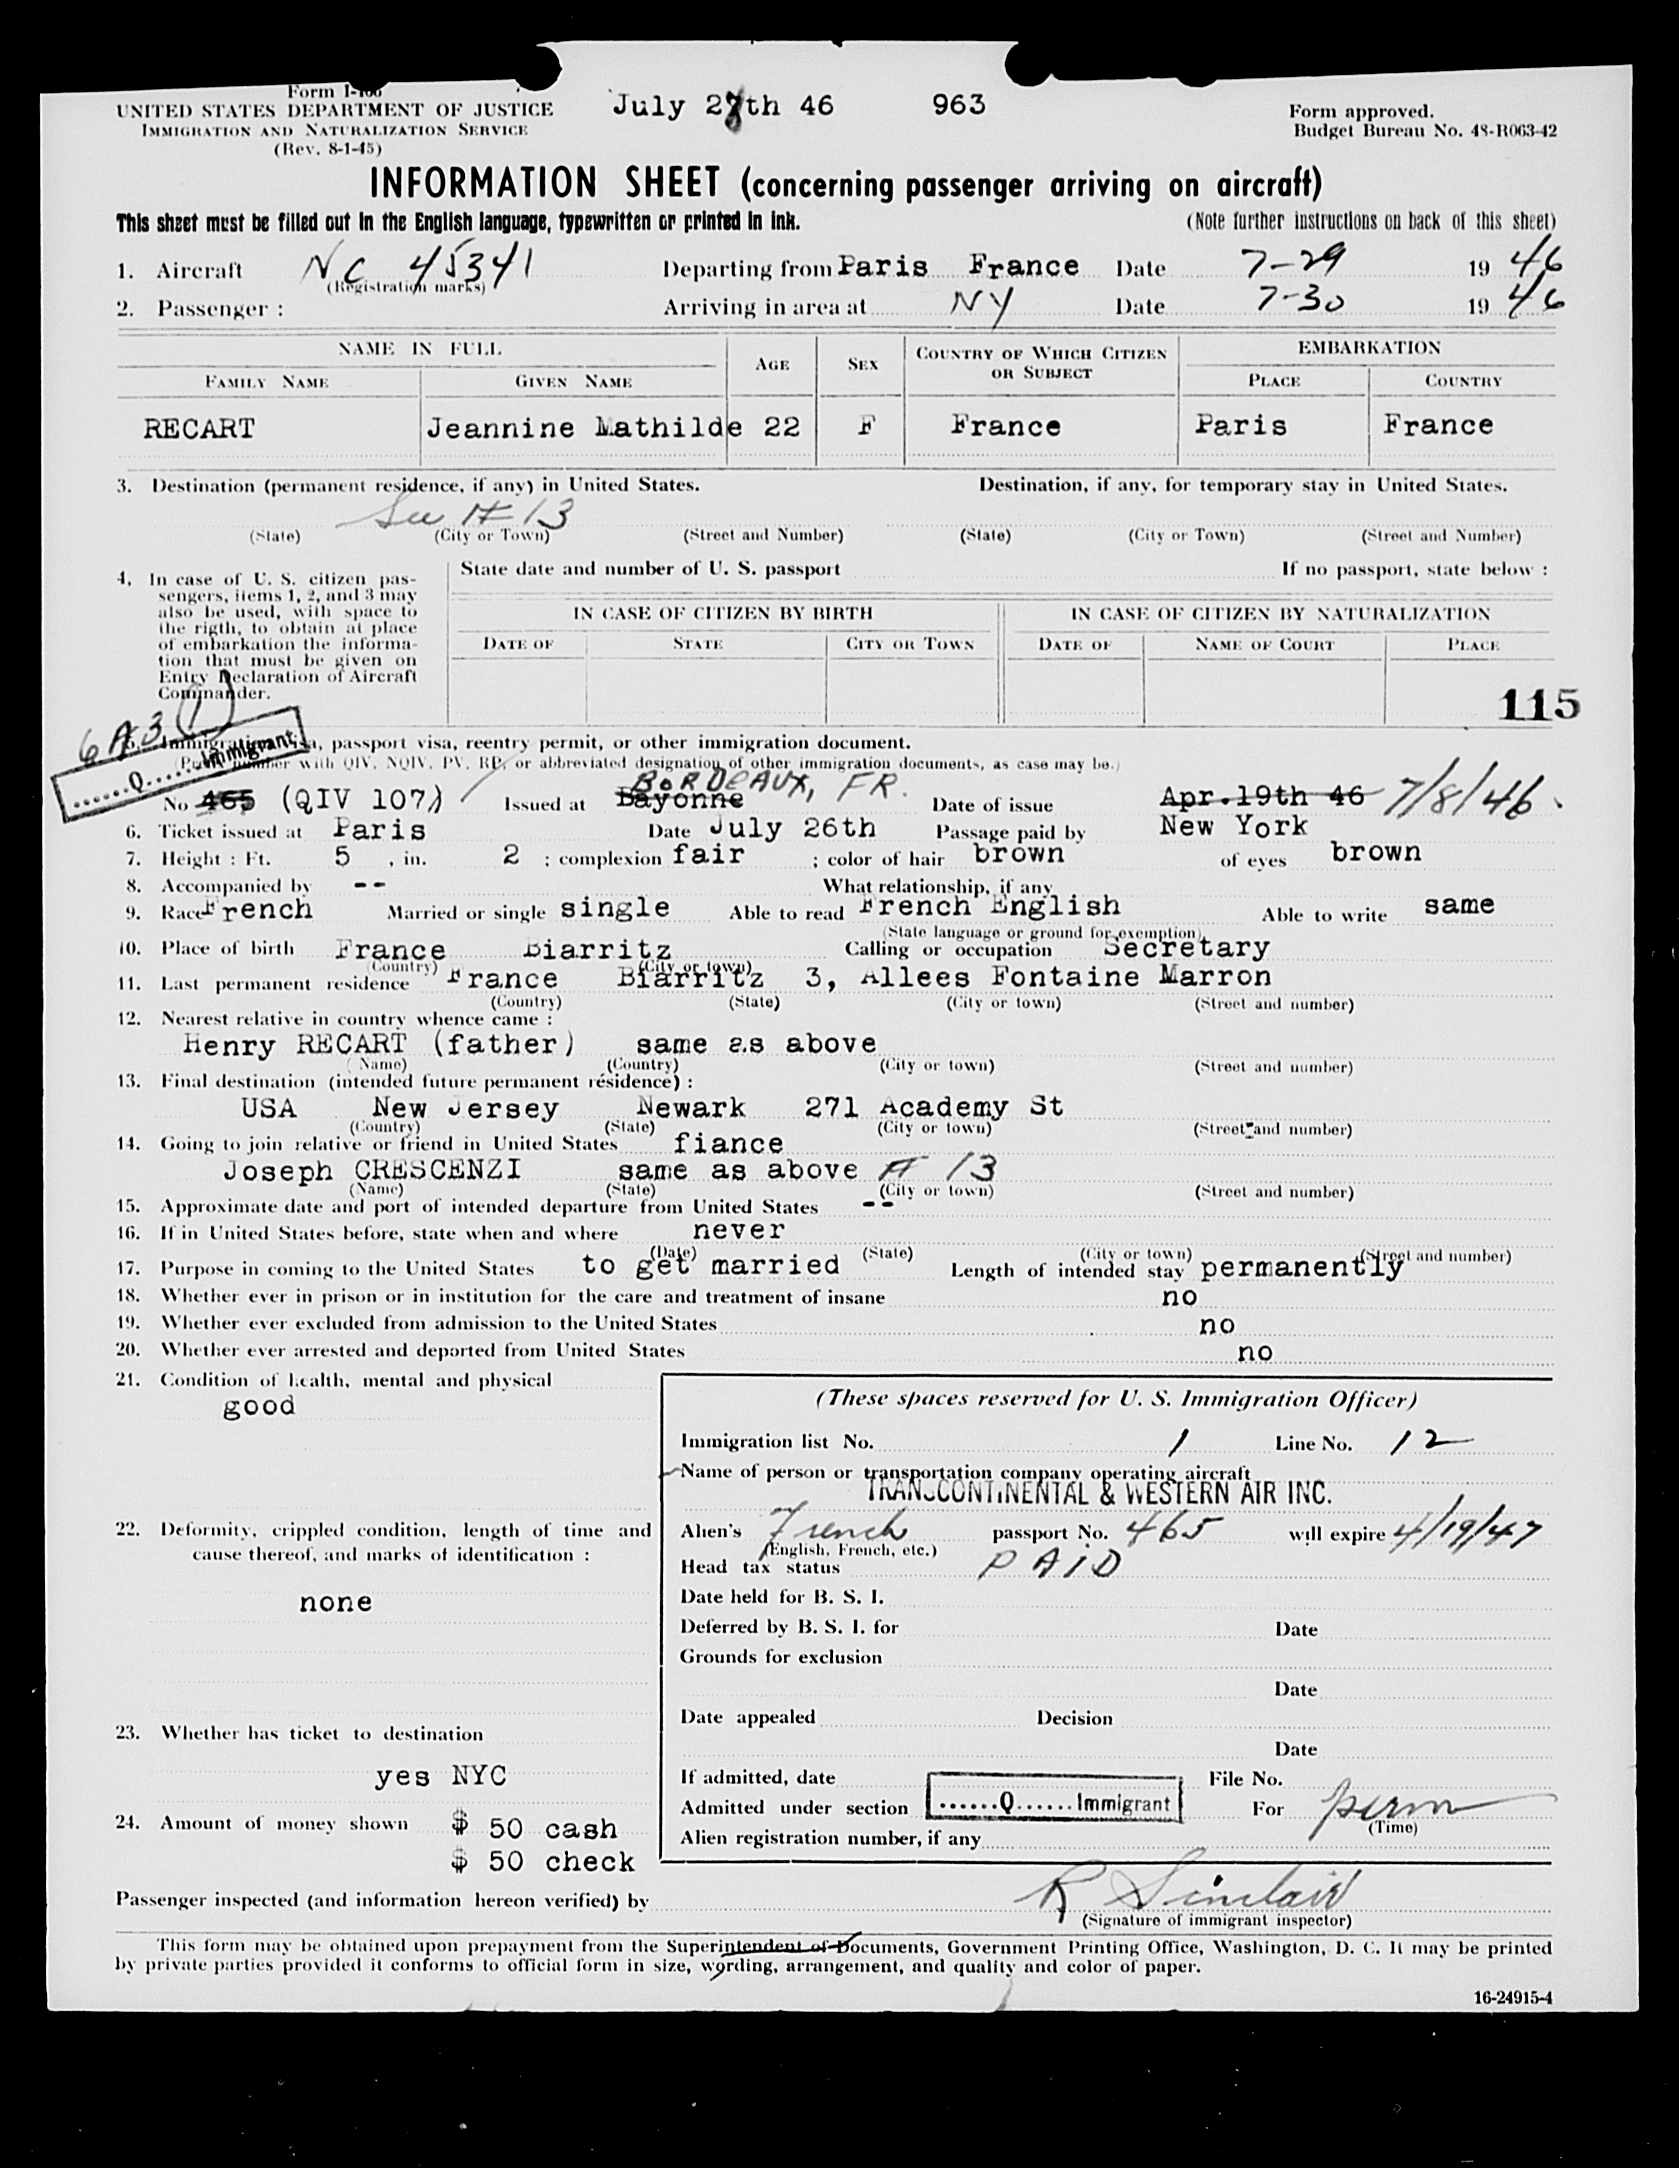 Form I-466
UNITED STATES DEPARTMENT OF JUSTICE July 28th 46 963 Form approved.
IMMIGRATION AND NATURALIZATION SERVICE Budget Bureau No. 43-R063-42
(Rev. 8-1-45)
INFORMATION SHEET (concerning passenger arriving on aircraft)
This sheet must be filled out in the English language, typewritten or printed in ink. (Note further instructions on back of this sheet)
1. Aircraft NC 45341 Departing from Paris France Date 7-29 19 46
(Registration marks)
2. Passenger : Arriving in area at NY Date 7-30 19 46
NAME IN FULL AGE SEX COUNTRY OF WHICH CITIZEN OR SUBJECT EMBARKATION
FAMILY NAME GIVEN NAME PLACE COUNTRY
RECART Jeannine Mathilde 22 F France Paris France
3. Destination (permanent residence, if any) in United States. Destination, if any, for temporary stay in United States.
See # 13
(State) (City or Town) (Street and Number) (State) (City or Town) (Street and Number)
4. In case of U. S. citizen pas- State date and number of U. S. passport If no passport, state below :
sengers, items 1, 2, and 3 may
also be used, with space to IN CASE OF CITIZEN BY BIRTH IN CASE OF CITIZEN BY NATURALIZATION
the rigth, to obtain at place
of embarkation the informa- DATE OF STATE CITY OR TOWN DATE OF NAME OF COURT PLACE
tion that must be given on
Entry Declaration of Aircraft
Commander.
115
6 A3 (1)
......Q......Immigrant
5. Immigration visa, passport visa, reentry permit, or other immigration document.
number with QIV, NQIV, PV, RP, or abbreviated designation of other immigration documents, as case may be.)
BORDEAUX, FR.
No 465 (QIV 107) Issued at Bayonne Date of issue Apr.19th 46 7/8/46
6. Ticket issued at Paris Date July 26th Passage paid by New York
7. Height : Ft. 5 , in. 2 ; complexion fair ; color of hair brown of eyes brown
8. Accompanied by -- What relationship, if any
9. Race French Married or single single Able to read French English Able to write same
(State language or ground for exemption)
10. Place of birth France Biarritz Calling or occupation Secretary
(Country) (City or town)
11. Last permanent residence France Biarritz 3, Allees Fontaine Marron
(Country) (State) (City or town) (Street and number)
12. Nearest relative in country whence came :
Henry RECART (father) same as above
(Name) (Country) (City or town) (Street and number)
13. Final destination (intended future permanent résidence) :
USA New Jersey Newark 271 Academy St
(Country) (State) (City or town) (Street and number)
14. Going to join relative or friend in United States fiance
Joseph CRESCENZI same as above # 13
(Name) (State) (City or town) (Street and number)
15. Approximate date and port of intended departure from United States --
16. If in United States before, state when and where never
(Date) (State) (City or town) (Street and number)
17. Purpose in coming to the United States to get married Length of intended stay permanently
18. Whether ever in prison or in institution for the care and treatment of insane no
19. Whether ever excluded from admission to the United States no
20. Whether ever arrested and deported from United States no
21. Condition of health, mental and physical
good
(These spaces reserved for U. S. Immigration Officer)
Immigration list No. 1 Line No. 12
Name of person or transportation company operating aircraft
TRANSCONTINENTAL & WESTERN AIR INC.
22. Deformity, crippled condition, length of time and
cause thereof, and marks of identification :
none
Alien's French passport No. 465 will expire 4/19/47
(English, French, etc.)
Head tax status PAID
Date held for B. S. I.
Deferred by B. S. I. for Date
Grounds for exclusion
Date
Date appealed Decision
Date
23. Whether has ticket to destination
yes NYC
24. Amount of money shown $ 50 cash
$ 50 check
If admitted, date File No.
Admitted under section ......Q......Immigrant For perm
(Time)
Alien registration number, if any
Passenger inspected (and information hereon verified) by R Sinclair
(Signature of immigrant inspector)
This form may be obtained upon prepayment from the Superintendent of Documents, Government Printing Office, Washington, D. C. It may be printed
by private parties provided it conforms to official form in size, wording, arrangement, and quality and color of paper.
16-24915-4